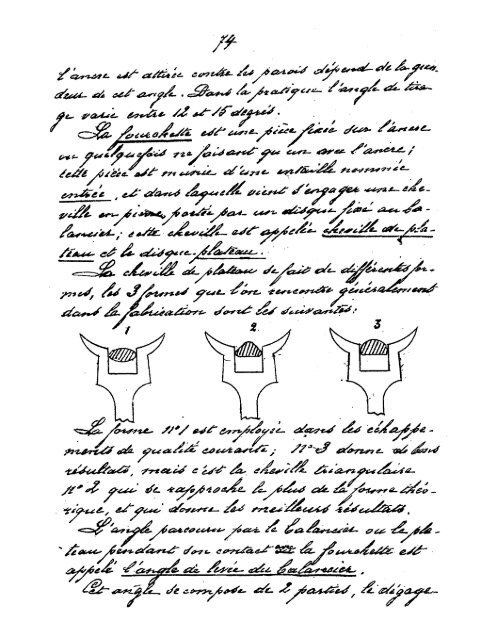 74
l'ancre est attirée contre les parois dépend de la gran-
deur de cet angle. Dans la pratique l'angle de tira-
ge varie entre 12 et 15 degrés.
La fourchette est une pièce fixée sur l'ancre
ou quelquefois ne faisant qu'un avec l'ancre;
cette pièce est munie d'une entaille nommée
entrée, et dans laquelle vient s'engager une che-
ville en pierre, portée par un disque fixé au ba-
lancier; cette cheville est appelée cheville de pla-
teau et le disque plateau.
La cheville de plateau se fait de différentes for-
mes, les 3 formes que l'on rencontre généralement
dans la fabrication sont les suivantes:
1 2 3
La forme n° 1 est employée dans les échappe-
ments de qualité courante; n° 3 donne de bons
résultats, mais c'est la cheville triangulaire
n° 2 qui se rapproche le plus de la forme théo-
rique, et qui donne les meilleurs résultats.
L'angle parcouru par le balancier ou le pla-
teau pendant son contact avec la fourchette est
appelé l'angle de levée du balancier.
Cet angle se compose de 2 parties, le dégage